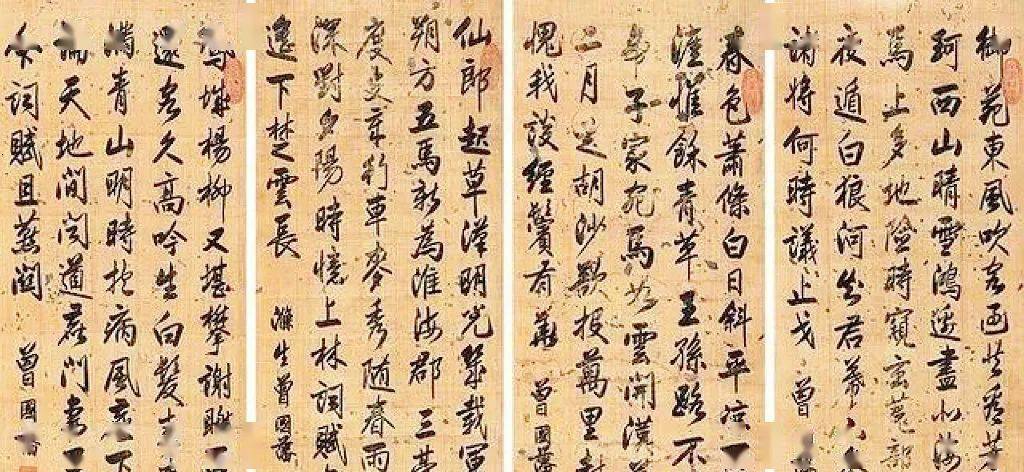 御苑東風吹客過
珂西山晴雪鴻邊盡北海
馬上多地險時窺玄菟郡
夜遁白狼河知君幕
諸將何時議止戈 曾
春色蕭條白日斜平涼
涯惟餘青草王孫路不
帝子家宛馬如雲開漢
二月走胡沙欲投萬里封
愧我談經鬢有華 曾國藩
仙郎起草漢明光幾載軍
朔方五馬新為淮海郡三
度支章行車麥秀隨春雨
深對夕陽時憶上林詞賦
遙下楚雲長 滌生曾國藩
城楊柳又堪攀謝朓
還客久高吟生白髮
滿青山明時抱病風塵下
天地間聞道鹿門妻
今詞賦且燕關 曾國藩